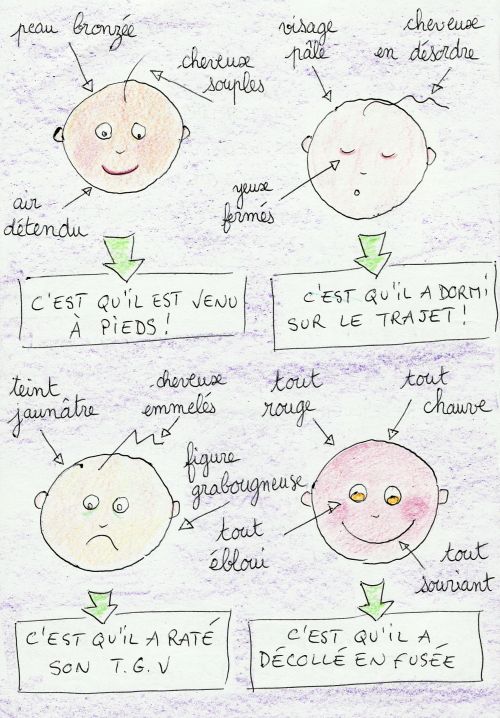 peau bronzée
cheveux
souples
air
détendu
C'EST QU'IL EST VENU
À PIEDS !
visage
pâle
cheveux
en désordre
yeux
fermés
C'EST QU'IL A DORMI
SUR LE TRAJET !
teint
jaunâtre
cheveux
emmelés
figure
grabougneuse
C'EST QU'IL A RATÉ
SON T.G.V
tout
rouge
tout
chauve
tout
ébloui
tout
souriant
C'EST QU'IL A
DÉCOLLÉ EN FUSÉE